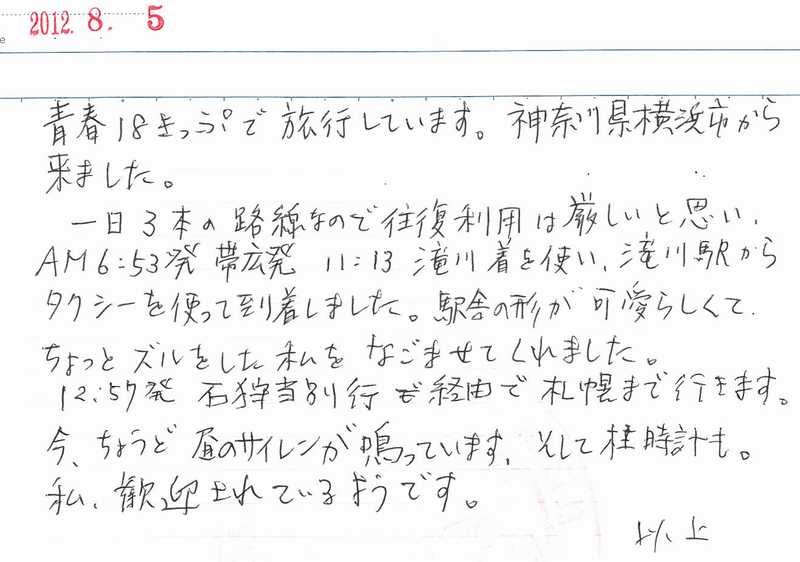 2012. 8. 5
青春18きっぷで旅行しています。神奈川県横浜市から
来ました。
一日3本の路線なので往復利用は厳しいと思い、
AM6:53発 帯広発 11:13 滝川着を使い、滝川駅から
タクシーを使って到着しました。駅舎の形が可愛らしくて
ちょっとズルをした私をなごませてくれました。
12:57発 石狩当別行を経由で札幌まで行きます。
今、ちょうど昼のサイレンが鳴っています。そして柱時計も。
私、歓迎されているようです。
以上